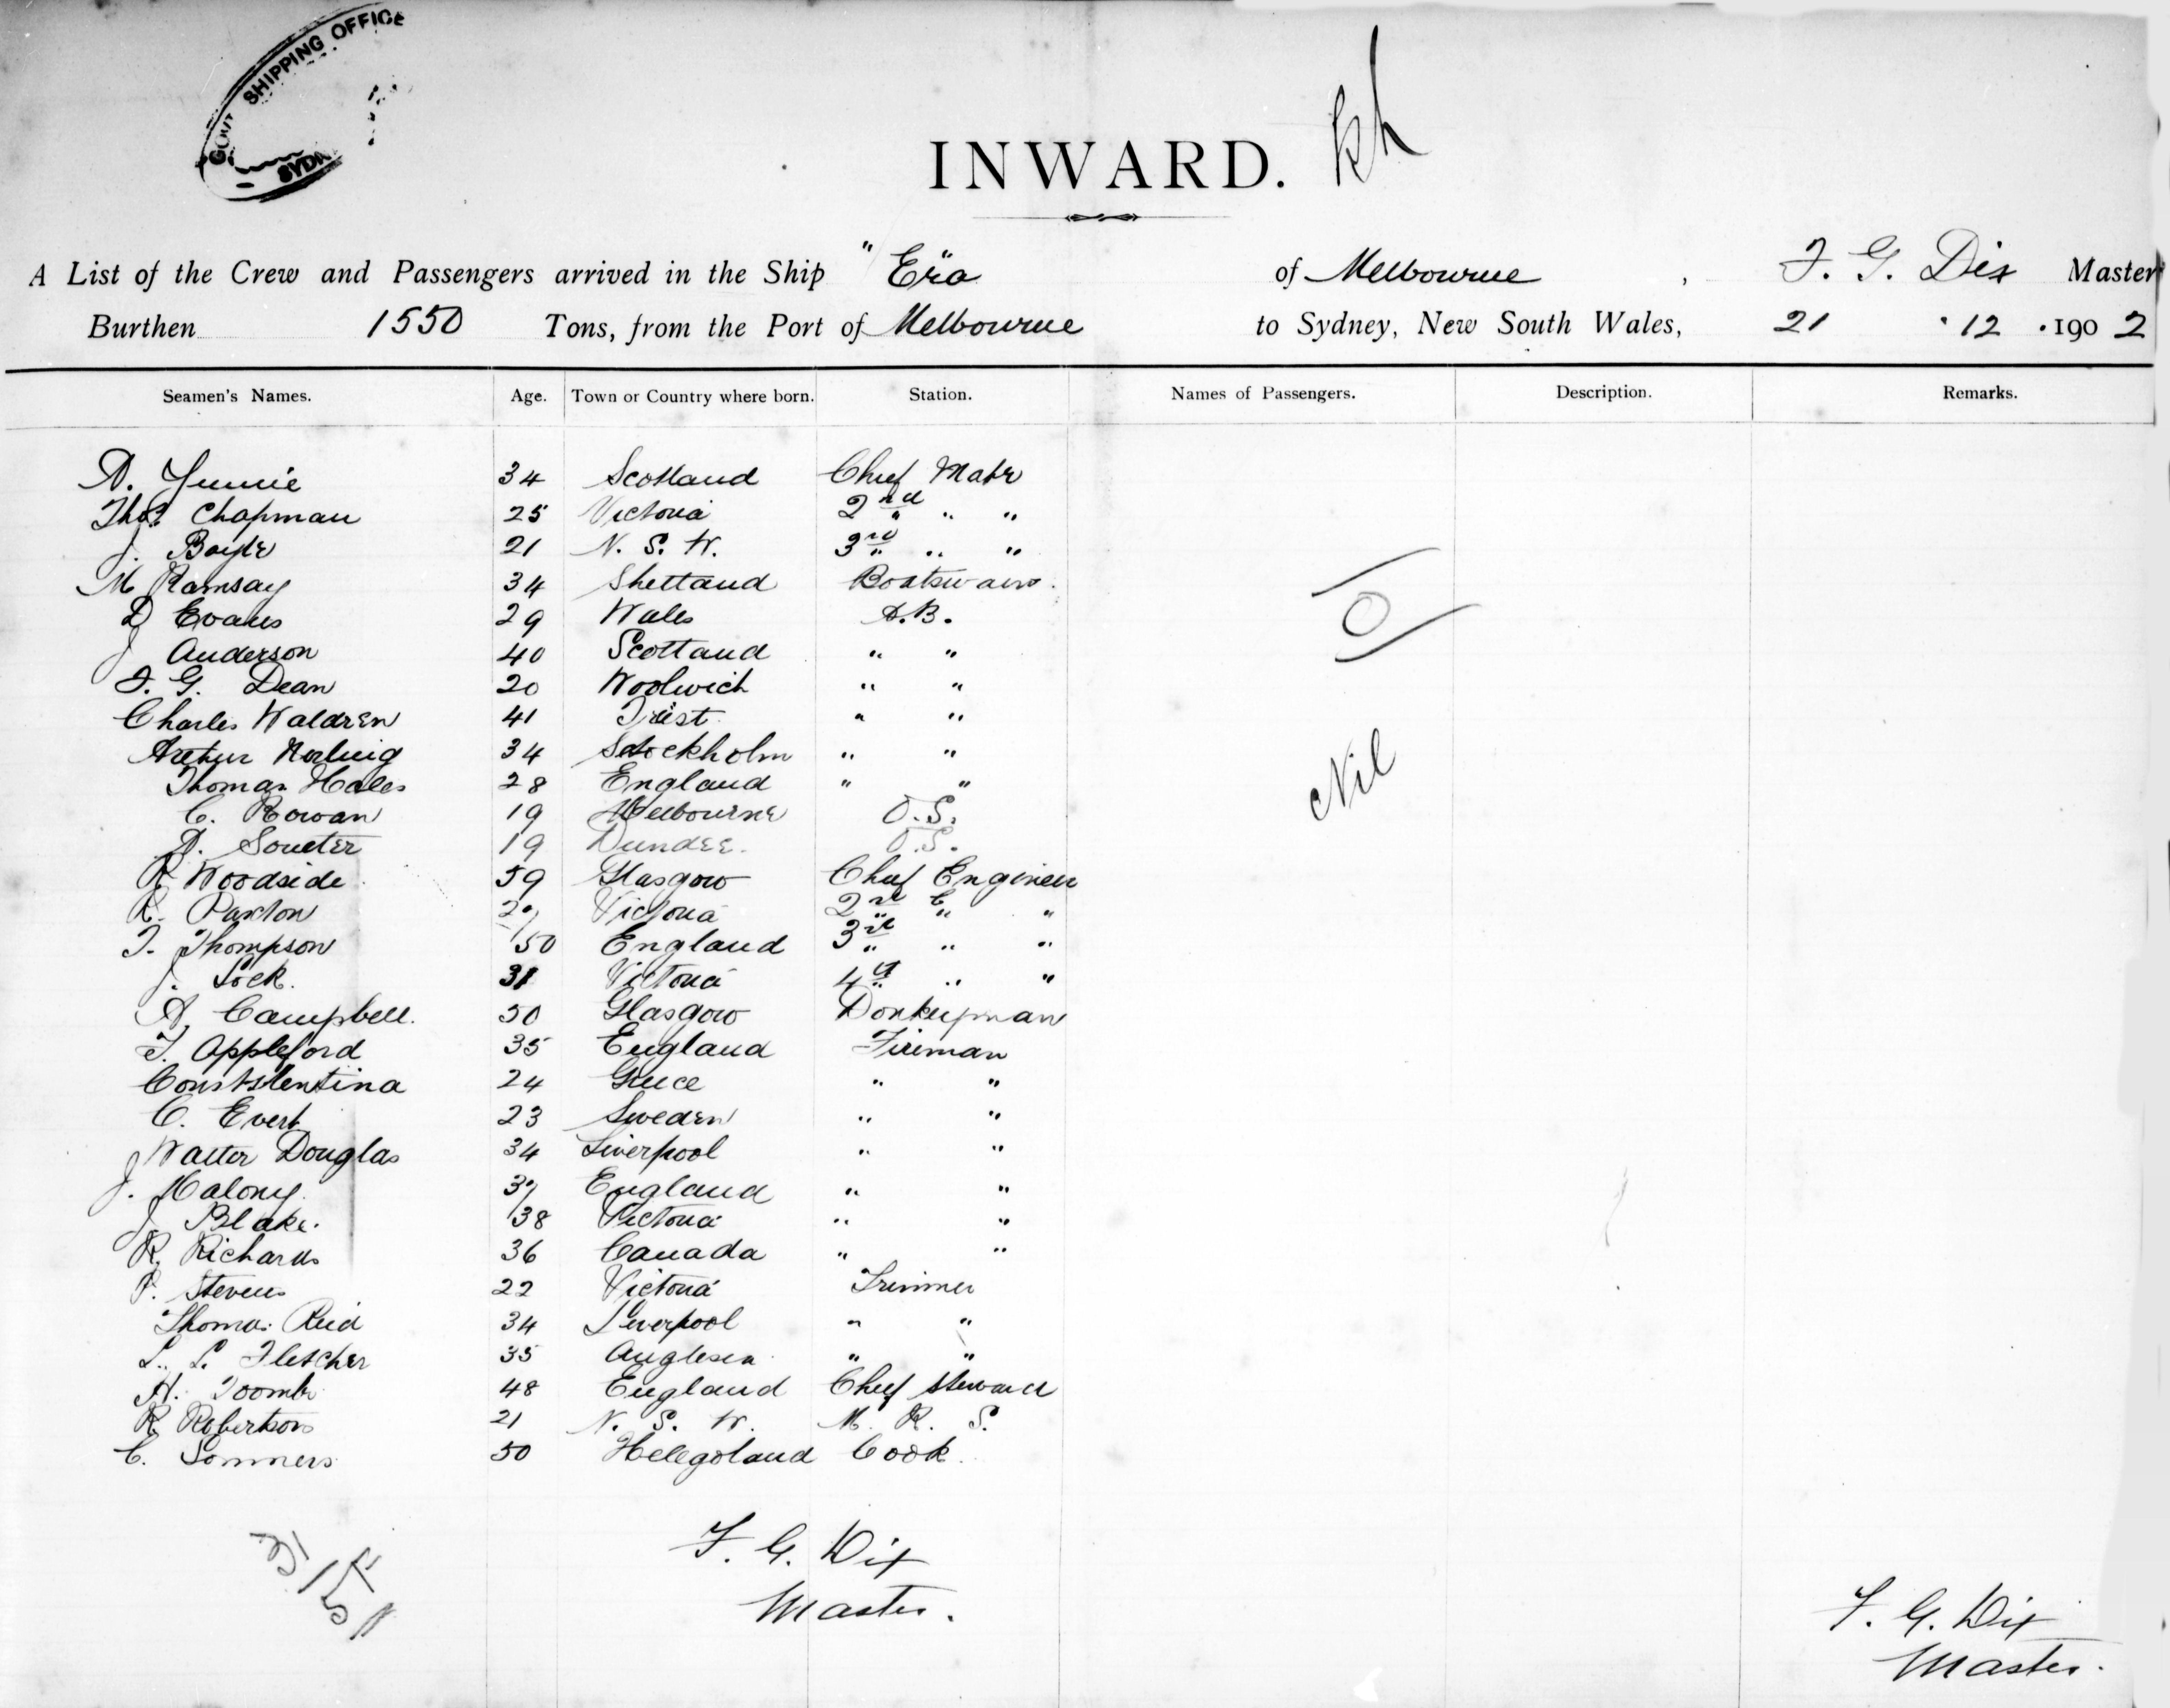 GOV'MT SHIPPING OFFICE
SYDN
INWARD.
A List of the Crew and Passengers arrived in the Ship "Era of Melbourne, F. G. Dix Master
Burthen 1550 Tons, from the Port of Melbourne to Sydney, New South Wales, 21 . 12 . 1902
Seamen's Names. Age. Town or Country where born. Station. Names of Passengers. Description. Remarks.
34 Scotland Chief Mate
Thos. Chapman 25 Victoria 2nd " " "
J. Boyle 21 N. S. W. 3rd " " "
M Ramsay 34 Shetland Boatswain.
D Evans 29 Wales A.B.
J Anderson 40 Scotland " "
F. G. Dean 20 Woolwich " "
Charles Waldren 41 " "
34 Stockholm " "
Thomas Hales 28 England " "
C. Rowan 19 Melbourne O.S.
D. Souter 19 Dundee. O.S.
R Woodside 59 Glasgow Chief Engineer
R. Paxton 27 Victoria 2nd E " "
T. Thompson 50 England 3rd " " "
J. Lock. 31 Victoria 4th " "
A Campbell. 50 Glasgow Donkeyman
T. Appleford 35 England Fireman
24 Greece " "
C. Evert 23 Sweden " "
Walter Douglas 34 Liverpool " "
J. Malony. 37 England " "
J Blake. 38 Victoria " "
R. Richards 36 Canada " "
P. Stevens 22 Victoria Trimmer
Thomas Reid 34 Liverpool " "
L. L. Fletcher 35 Anglesea " "
H. Toombs 48 England Chief Steward
R Robertson 21 N. S. W. M. R. S.
C. Sommers 50 Helegoland Cook.
O
Nil
31
F. G. Dix
Master.
F. G. Dix
Master.